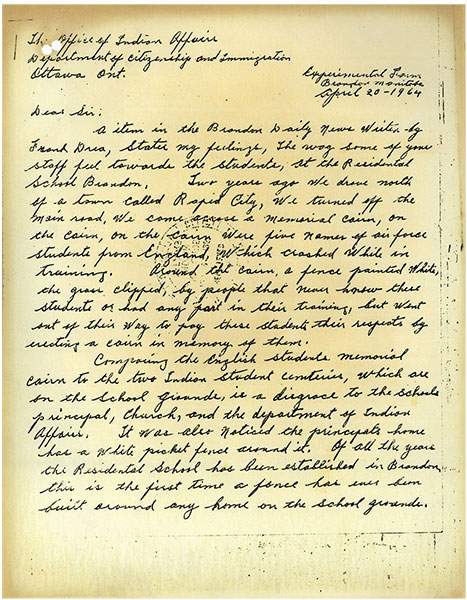 The Office of Indian Affairs
Department of Citizenship and Immigration
Ottawa Ont.
Experimental Farm
Brandon Manitoba
April 20-1964
Dear Sir:
A item in the Brandon Daily News Writer by
Frank Drea, States my feelings, The way some of your
staff feel towards the students, at the Residential
School Brandon. Two years ago we drove north
of a town called Rapid City, We turned off the
main road, We came across a memorial cairn, on
the cairn, on the cairn were five names of air force
students from England, Which crashed While in
training. Around the cairn, a fence painted White,
the grass clipped, by people that never knew these
students or had any part in their training, but went
out of their way to pay these students their respects by
erecting a cairn in memory of them.
Comparing the English students memorial
cairn to the two Indian student cemteries, Which are
on the School grounds, is a disgrace to the schools
principal, church, and the department of Indian
Affairs. It was also Noticed the principals home
has a White picket fence around it. Of all the years
the Residential School has been established in Brandon,
this is the first time a fence has ever been
built around any home on the school grounds.